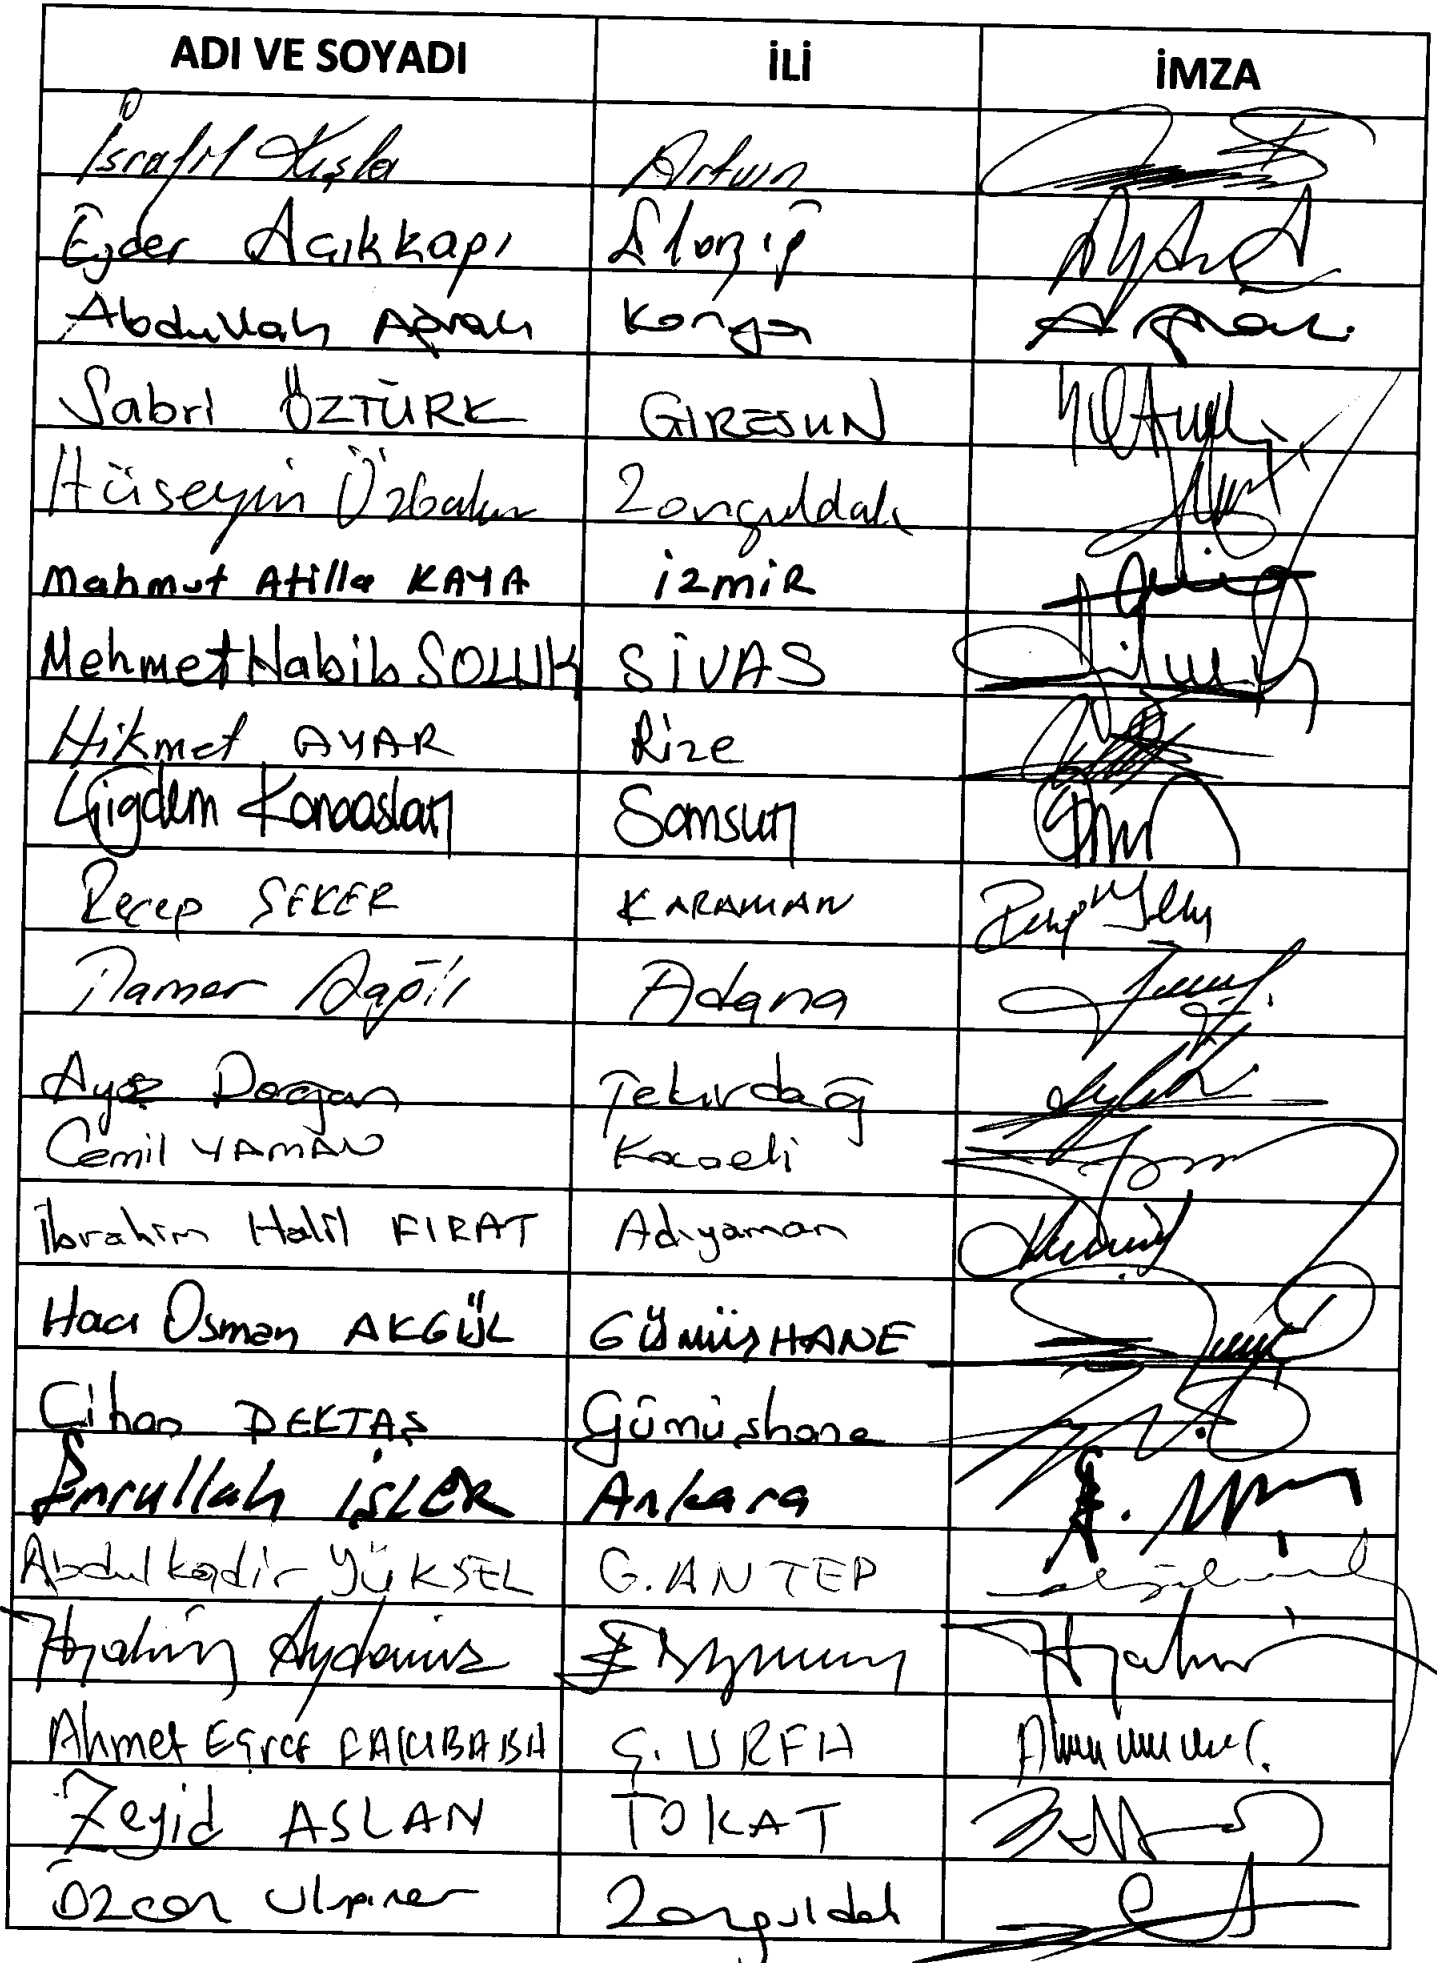 ADI VE SOYADI İLİ İMZA
İsrafil Kışla Artvin
Ejder Açıkkapı Elazığ
Abdullah Ağralı Konya
Sabri ÖZTÜRK GİRESUN
Hüseyin Özbakır Zonguldak
Mahmut Atilla KAYA İZMİR
Mehmet Habib SOLUK SİVAS
Hikmet AYAR Rize
Çiğdem Karaaslan Samsun
Recep ŞEKER KARAMAN
Tamer Dağlı Adana
Ayşe Doğan Tekirdağ
Cemil YAMAN Kocaeli
İbrahim Halil FIRAT Adıyaman
Hacı Osman AKGÜL GÜMÜŞHANE
Cihan PEKTAŞ Gümüşhane
Emrullah İŞLER Ankara
Abdulkadir YÜKSEL G.ANTEP
İbrahim Aydemir Erzurum
Ahmet Eşref FAKIBABA Ş.URFA
Zeyid ASLAN TOKAT
Özcan Ulupınar Zonguldak